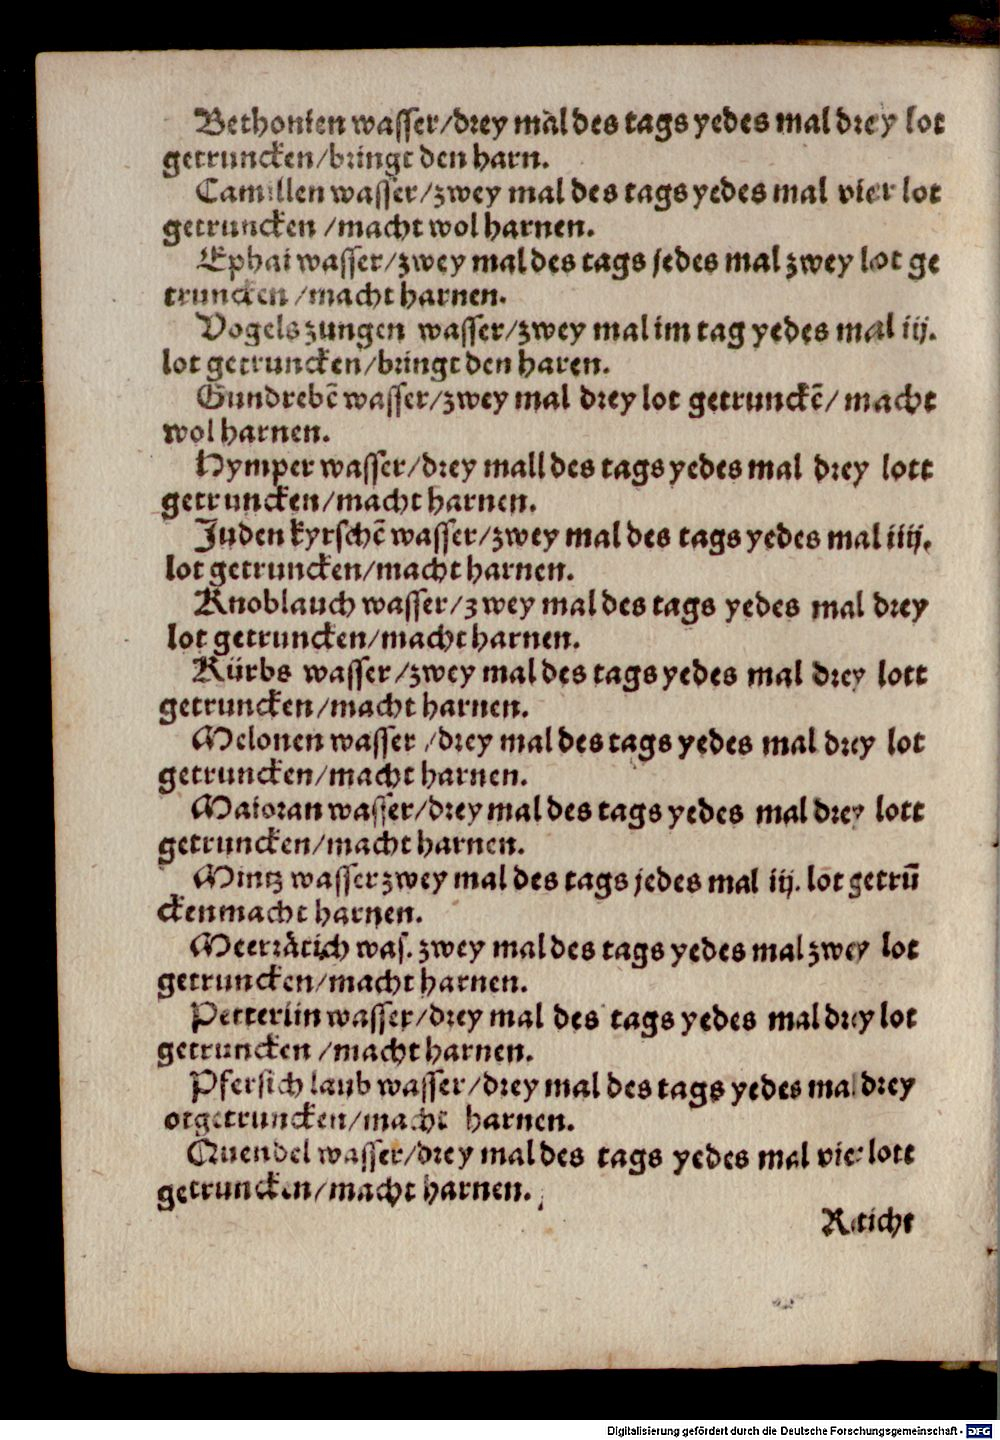 Bethonien wasser/drey mal des tags yedes mal drey lot
getruncken/bringt den harn.
Camillen wasser/zwey mal des tags yedes mal vier lot
getruncken /macht wol harnen.
Ephai wasser/zwey mal des tags jedes mal zwey lot ge
truncken /macht harnen.
Vogels zungen wasser/zwey mal im tag yedes mal iij.
lot getruncken/bringt den haren.
Gundrebē wasser/zwey mal drey lot getrunckē/ macht
wol harnen.
Hymper wasser/drey mall des tags yedes mal drey lott
getruncken/macht harnen.
Juden kyrschē wasser/zwey mal des tags yedes mal iiij.
lot getruncken/macht harnen.
Knoblauch wasser/zwey mal des tags yedes mal drey
lot getruncken/macht harnen.
Kürbs wasser/zwey mal des tags yedes mal drey lott
getruncken/macht harnen.
Melonen wasser /drey mal des tags yedes mal drey lot
getruncken/macht harnen.
Maioran wasser/drey mal des tags yedes mal drey lott
getruncken/macht harnen.
Mintz wasser zwey mal des tags jedes mal iij. lot getrū
cken macht harnen.
Meerrätich was. zwey mal des tags yedes mal zwey lot
getruncken/macht harnen.
Petterlin wasser/drey mal des tags yedes mal drey lot
getruncken /macht harnen.
Pfersich laub wasser/drey mal des tags yedes mal drey
ot getruncken/macht harnen.
Quendel wasser/drey mal des tags yedes mal vier lott
getruncken/macht harnen.
Reticht
Digitalisierung gefördert durch die Deutsche Forschungsgemeinschaft - DFG